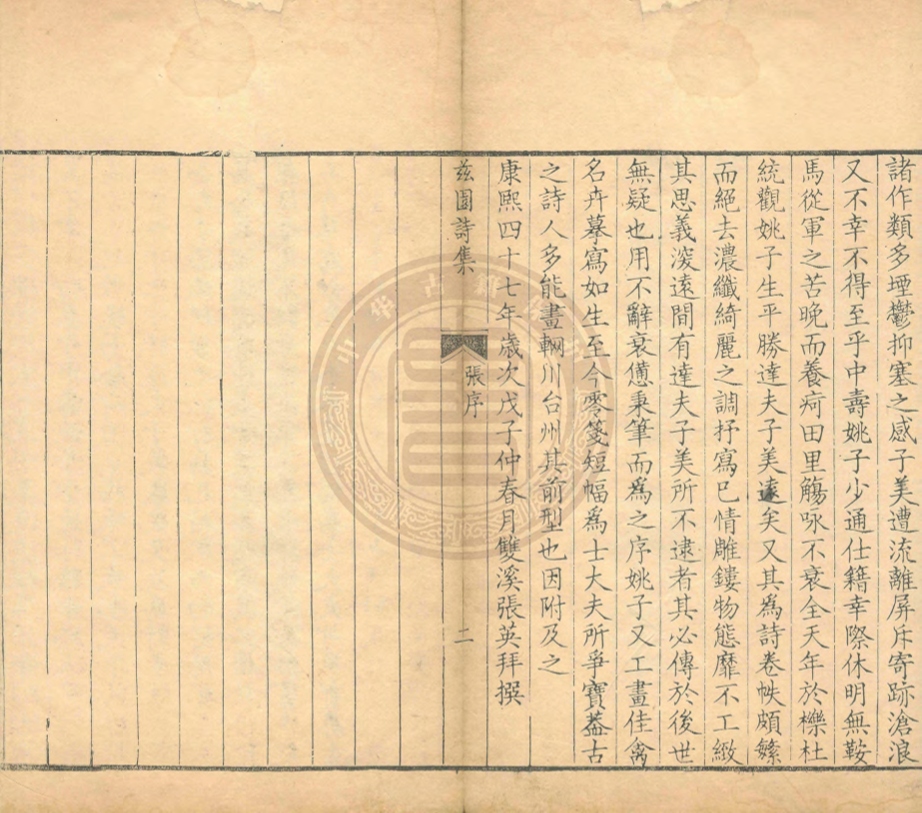 諸作類多堙鬱抑塞之感子美遭流離屏斥寄跡滄浪
又不幸不得至乎中壽姚子少通仕籍幸際休明無鞍
馬從軍之苦晚而養疴田里觴咏不衰全天年於櫟杜
統觀姚子生平勝達夫子美遠矣又其爲詩卷帙頗繁
而絕去濃纖綺麗之調抒寫巳情雕鏤物態靡不工緻
其思義深遠間有達夫子美所不逮者其必傳於後世
無疑也用不辭衰憊秉筆而爲之序姚子又工畫佳禽
名卉摹寫如生至今零箋短幅爲士大夫所爭寶葢古
之詩人多能畫輞川台州其前型也因附及之
康熙四十七年歲次戊子仲春月雙溪張英拜撰
兹園詩集
張序
二